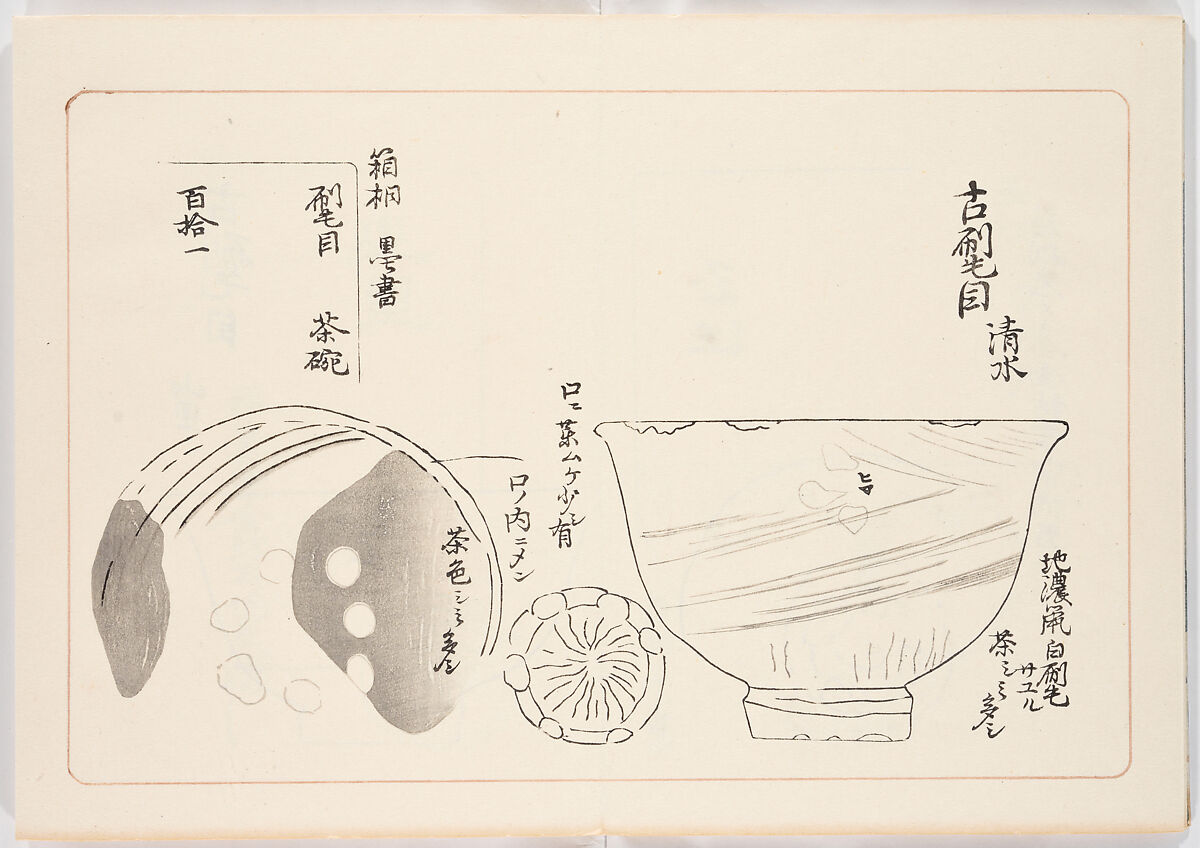 古刷毛目
清水
地濃鼠白刷毛
サユル
茶シミ多シ
口ニ薬ムケ少シ有
口ノ内ニメン
茶色シミ多シ
箱桐 墨書
刷毛目 茶碗
百拾一